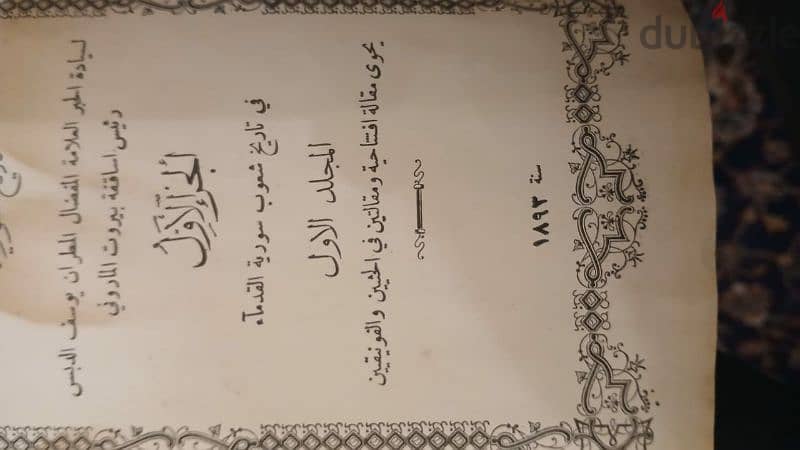 لسيادة الحبر العلامة المفضال المطران يوسف الدبس
رئيس اساقفة بيروت الماروني
الجزء الاول
في تاريخ شعوب سورية القدمآء
المجلد الاول
يحوي مقالة افتتاحية ومقالتين في الحثيين والفونيقيين
سنة ١٨٩٣